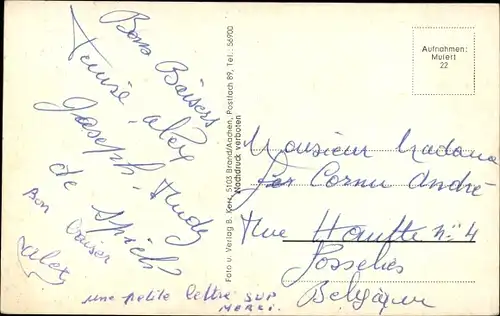 Bons Baisers
Tunise - alex
Joseph - Rudy
de Spich
Bon baiser
alex
une petite lettre SUP
MERCI.
Foto u. Verlag B. Korr, 5103 Brand/Aachen, Postfach 89, Tel.: 56900
Nachdruck verboten
Aufnahmen:
Mulert
22
Monsieur Madame
Cornu André
Rue Haute n° 4
Gosselies
Belgique